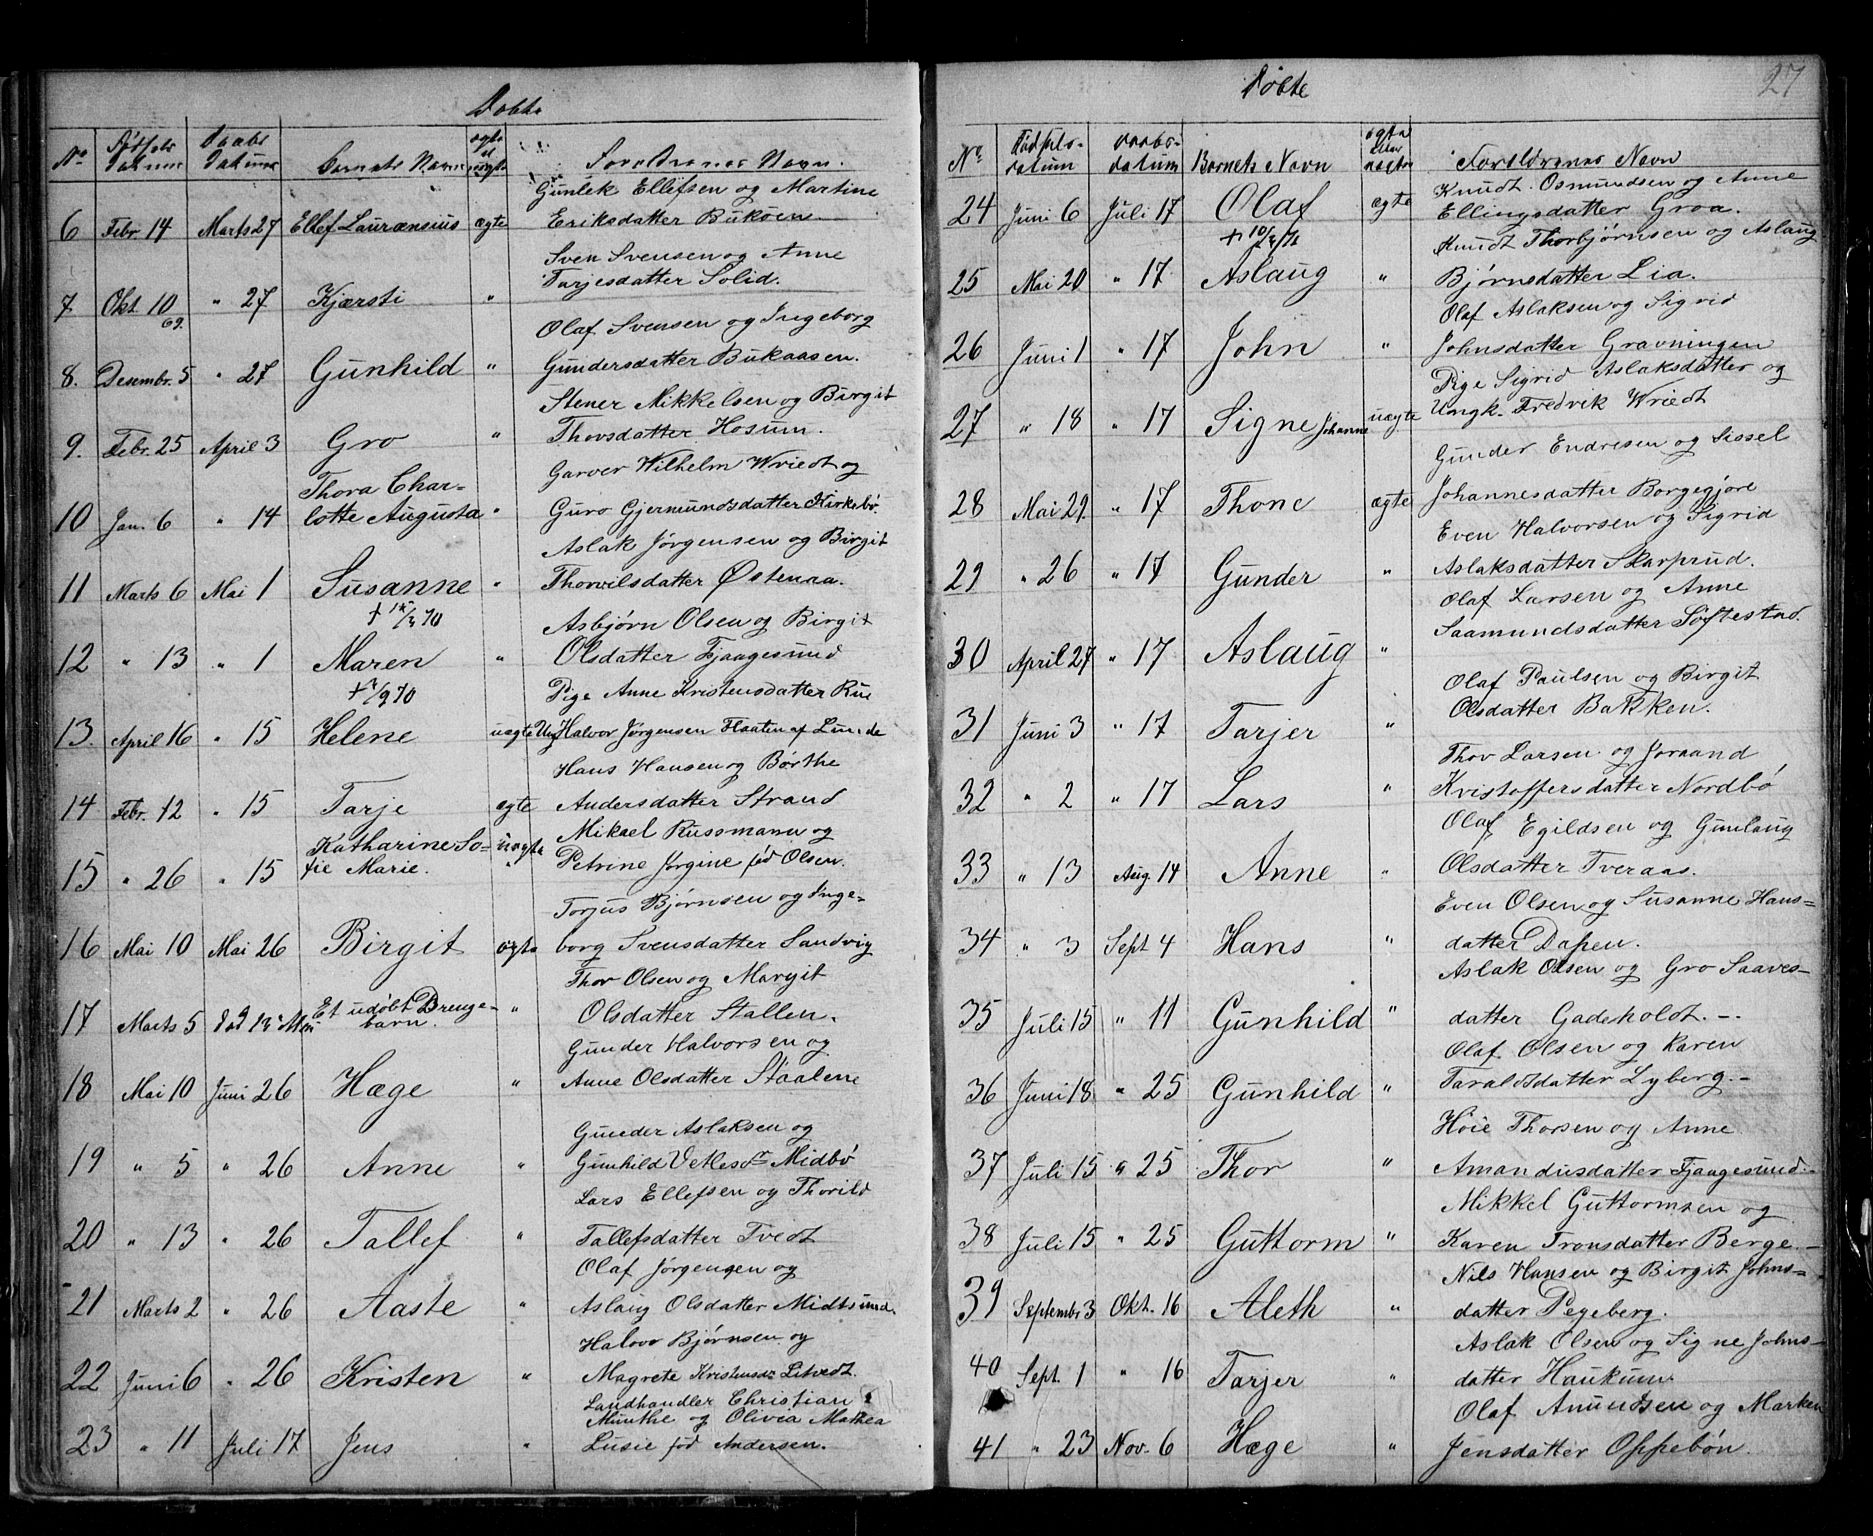 Døbte
No Fødsels Datum Daabs Datum Barnets Navn ægte el uægte Forældrenes Navn.
Gunlek Ellefsen og Martine
6 Febr. 14 Marts 27 Ellef Laurænsius ægte Eriksdatter Bukøen
Sven Svensen og Anne
Tarjesdatter Solid.
7 Okt. 10 69. " 27 Kjærsti "
Olaf Svensen og Ingeborg
8. Desembr. 5 " 27 Gunhild " Gundersdatter Bukaasen.
Stener Mikkelsen og Birgit
9. Febr. 25 April 3 Gro " Thovsdatter Hosum.
Garver Wilhelm Wriedt og
Thora Char-
10 Jan. 6 " 14 lotte Augusta " Guro Gjermundsdatter Kirkebø.
Aslak Jørgensen og Birgit
11 Marts 6 Mai 1 Susanne " Thorvilsdatter Østenaa.
Asbjørn Olsen og Birgit
12 " 13 " 1 Maren " Olsdatter Fjaagesund
Pige Anne Kristensdatter Rue
13. April 16 " 15 Helene uægte Ung Halvor Jørgensen Flaaten af Lunde
Hans Hansen og Børthe
14 Febr. 12 " 15 Tarje ægte Andersdatter Strand
Mikael Russmann og
Katharine So-
15 " 26 " 15 fie Marie. uægte Petrine Jørgine fød Olsen.
Torjus Bjørnsen og Inge-
16 Mai 10 Mai 26 Birgit ægte borg Svensdatter Sandvig
Thor Olsen og Margit
17 Marts 5 Et udøbt Drenge-
barn. " Olsdatter Stallen.
Gunder Halvorsen og
18 Mai 10 Juni 26 Hæge " Anne Olsdatter Staalene
Gunder Aslaksen og
19 " 5 " 26 Anne " Gunhild Vetlesdr Midbø
Lars Ellefsen og Thorild
20 " 13 " 26 Tallef " Tallefsdatter Tvedt
Olaf Jørgensen og
21 Marts 2 " 26 Aaste " Aslaug Olsdatter Midtsund.
Halvor Bjørnsen og
22 Juni 6 " 26 Kristen " Magrete Kristensdr Litvedt.
Landhandler Christian
Munthe og Olivia Mathea
23 " 11 Juli 17 Jens " Lusie fød Andersen.
Døbte 27
No Fødsels-datum Daabs-datum Barnets Navn ægte eller uægte Forældrenes Navn
Knudt Osmundsen og Anne
24 Juni 6 Juli 17 Olaf ægte Ellingsdatter Groa.
Knudt Thorbjørnsen og Aslaug
25 Mai 20 " 17 Aslaug " Bjørnsdatter Lia.
Olaf Aslaksen og Sigrid
26 Juni 1 " 17 John " Johnsdatter Gravningen
Pige Sigrid Aslaksdatter og
27 " 18 " 17 Signe Johanne uægte Ungk. Fredrik Wriedt
Gunder Endresen og Sissel
28 Mai 29. " 17 Thone ægte Johannesdatter Borgegjore
Even Halvorsen og Sigrid
29 " 26 " 17 Gunder " Aslaksdatter Skarprud.
Olaf Larsen og Anne
Saamundsdatter Søftestad.
30 April 27 " 17 Aslaug "
Olaf Paulsen og Birgit
31 Juni 3 " 17 Tarjer " Olsdatter Bakken.
Thov Larsen og Joraand
32 " 2 " 17 Lars " Kristoffersdatter Nordbø
Olaf Egildsen og Gunlaug
33 " 13 Aug. 14 Anne " Olsdatter Tveraas.
Even Olsen og Susanne Hans-
34 " 3 Sept 4 Hans " datter Dapen.
Aslak Olsen og Gro Saaves-
35 Juli 15 " 11 Gunhild " datter Gadeholdt. -
Olaf Olsen og Karen
36 Juni 18 " 25 Gunhild " Taraldsdatter Lyberg. -
Høie Thorsen og Anne
37 Juli 15 " 25 Thor " Amandusdatter Fjaagesund. -
Mikkel Guttormsen og
38 Juli 15 " 25 Guttorm " Karen Tronsdatter Berge. -
Nils Hansen og Birgit Johns-
39 Septembr 3 Okt. 16 Aleth " datter Pegeberg.
Aslak Olsen og Signe Johns-
40 Sept. 1 " 16 Tarjer " datter Haukum
Olaf Amundsen og Marken
41 " 23 Nov. 6 Hæge " Jensdatter Oppebøn.